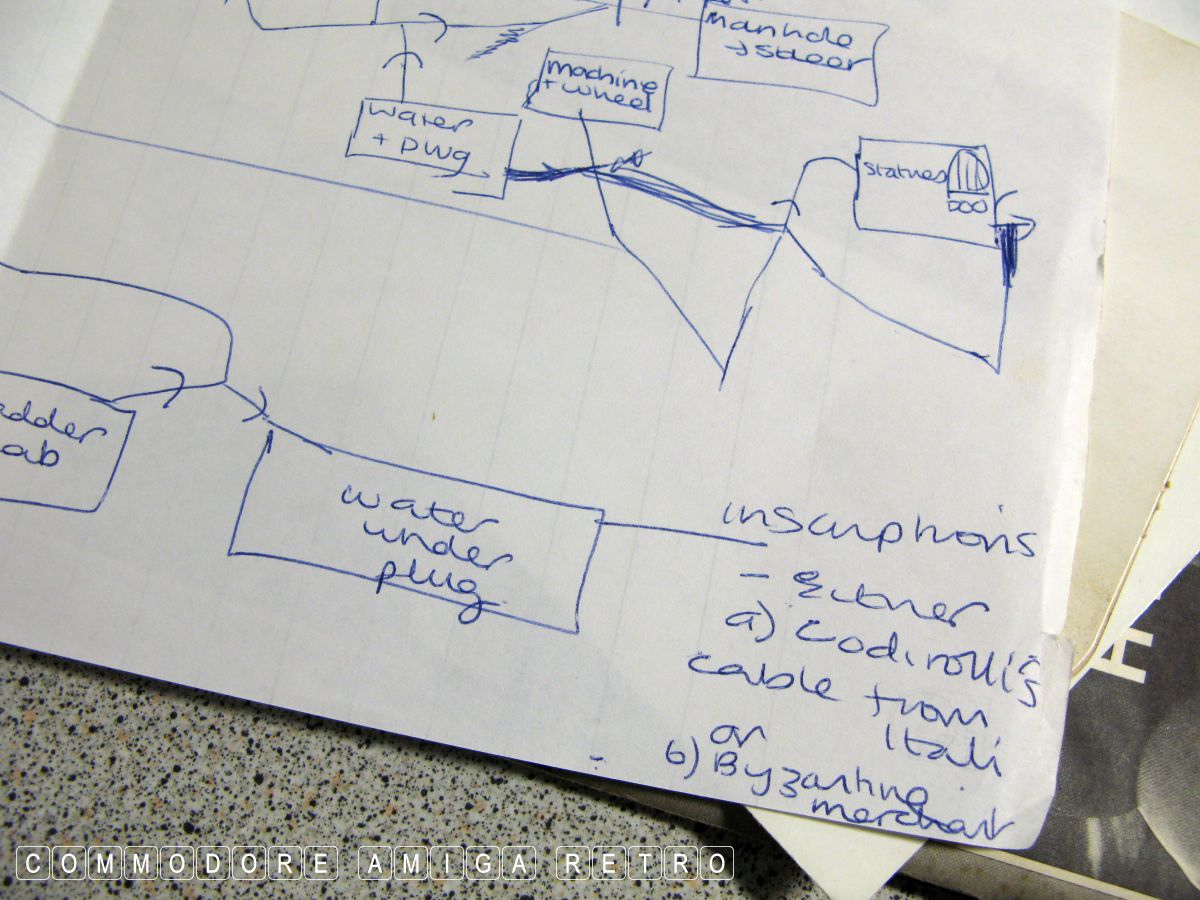 manhole
→ sewer
machine
+ wheel
water
+ plug
statues
water
under
plug
inscriptions
- either
a) Codirolli's
cable from
Itali
or
b) Byzantine
merchant
H
COMMODORE AMIGA RETRO